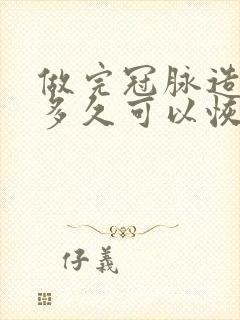 做完冠脉造
多久可以恢
仔義